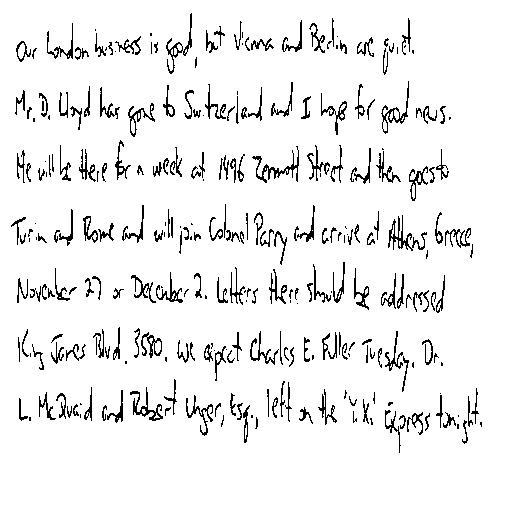 Our London business is good, but Vienna and Berlin are quiet.
Mr. D. Lloyd has gone to Switzerland and I hope for good news.
He will be there for a week at 1496 Zermott Street and then goes to
Turin and Rome and will join Colonel Parry and arrive at Athens, Greece,
November 27 or December 2. Letters there should be addressed
King James Blvd. 3580. We expect Charles E. Fuller Tuesday. Dr.
L. McQuaid and Robert Unger, Esq., left on the 'Y.X.' Express tonight.